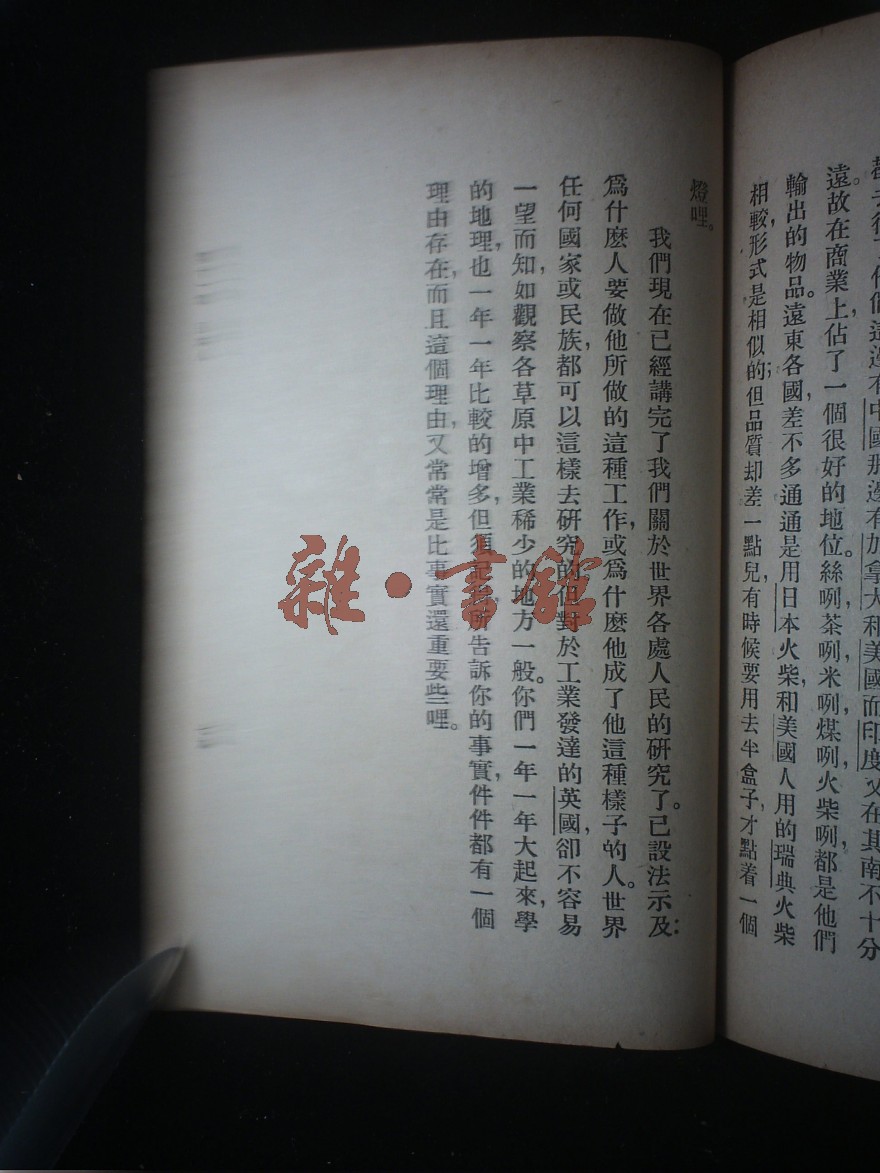 遠。故在商業上,佔了一個很好的地位。絲咧,茶咧,米咧,煤咧,火柴咧,都是他們
輸出的物品。遠東各國,差不多通通是用日本火柴,和美國人用的瑞典火柴
相較,形式是相似的;但品質却差一點兒,有時候要用去半盒子,才點着一個
燈哩。
我們現在已經講完了我們關於世界各處人民的研究了。已設法示及:
爲什麼人要做他所做的這種工作,或爲什麼他成了他這種樣子的人。世界
任何國家或民族,都可以這樣去研究的。但對於工業發達的英國,卻不容易
一望而知,如觀察各草原中工業稀少的地方一般。你們一年一年大起來,學
的地理,也一年一年比較的增多,但須記,所告訴你的事實,件件都有一個
理由存在,而且這個理由,又常常是比事實還重要些哩。
雜·書館